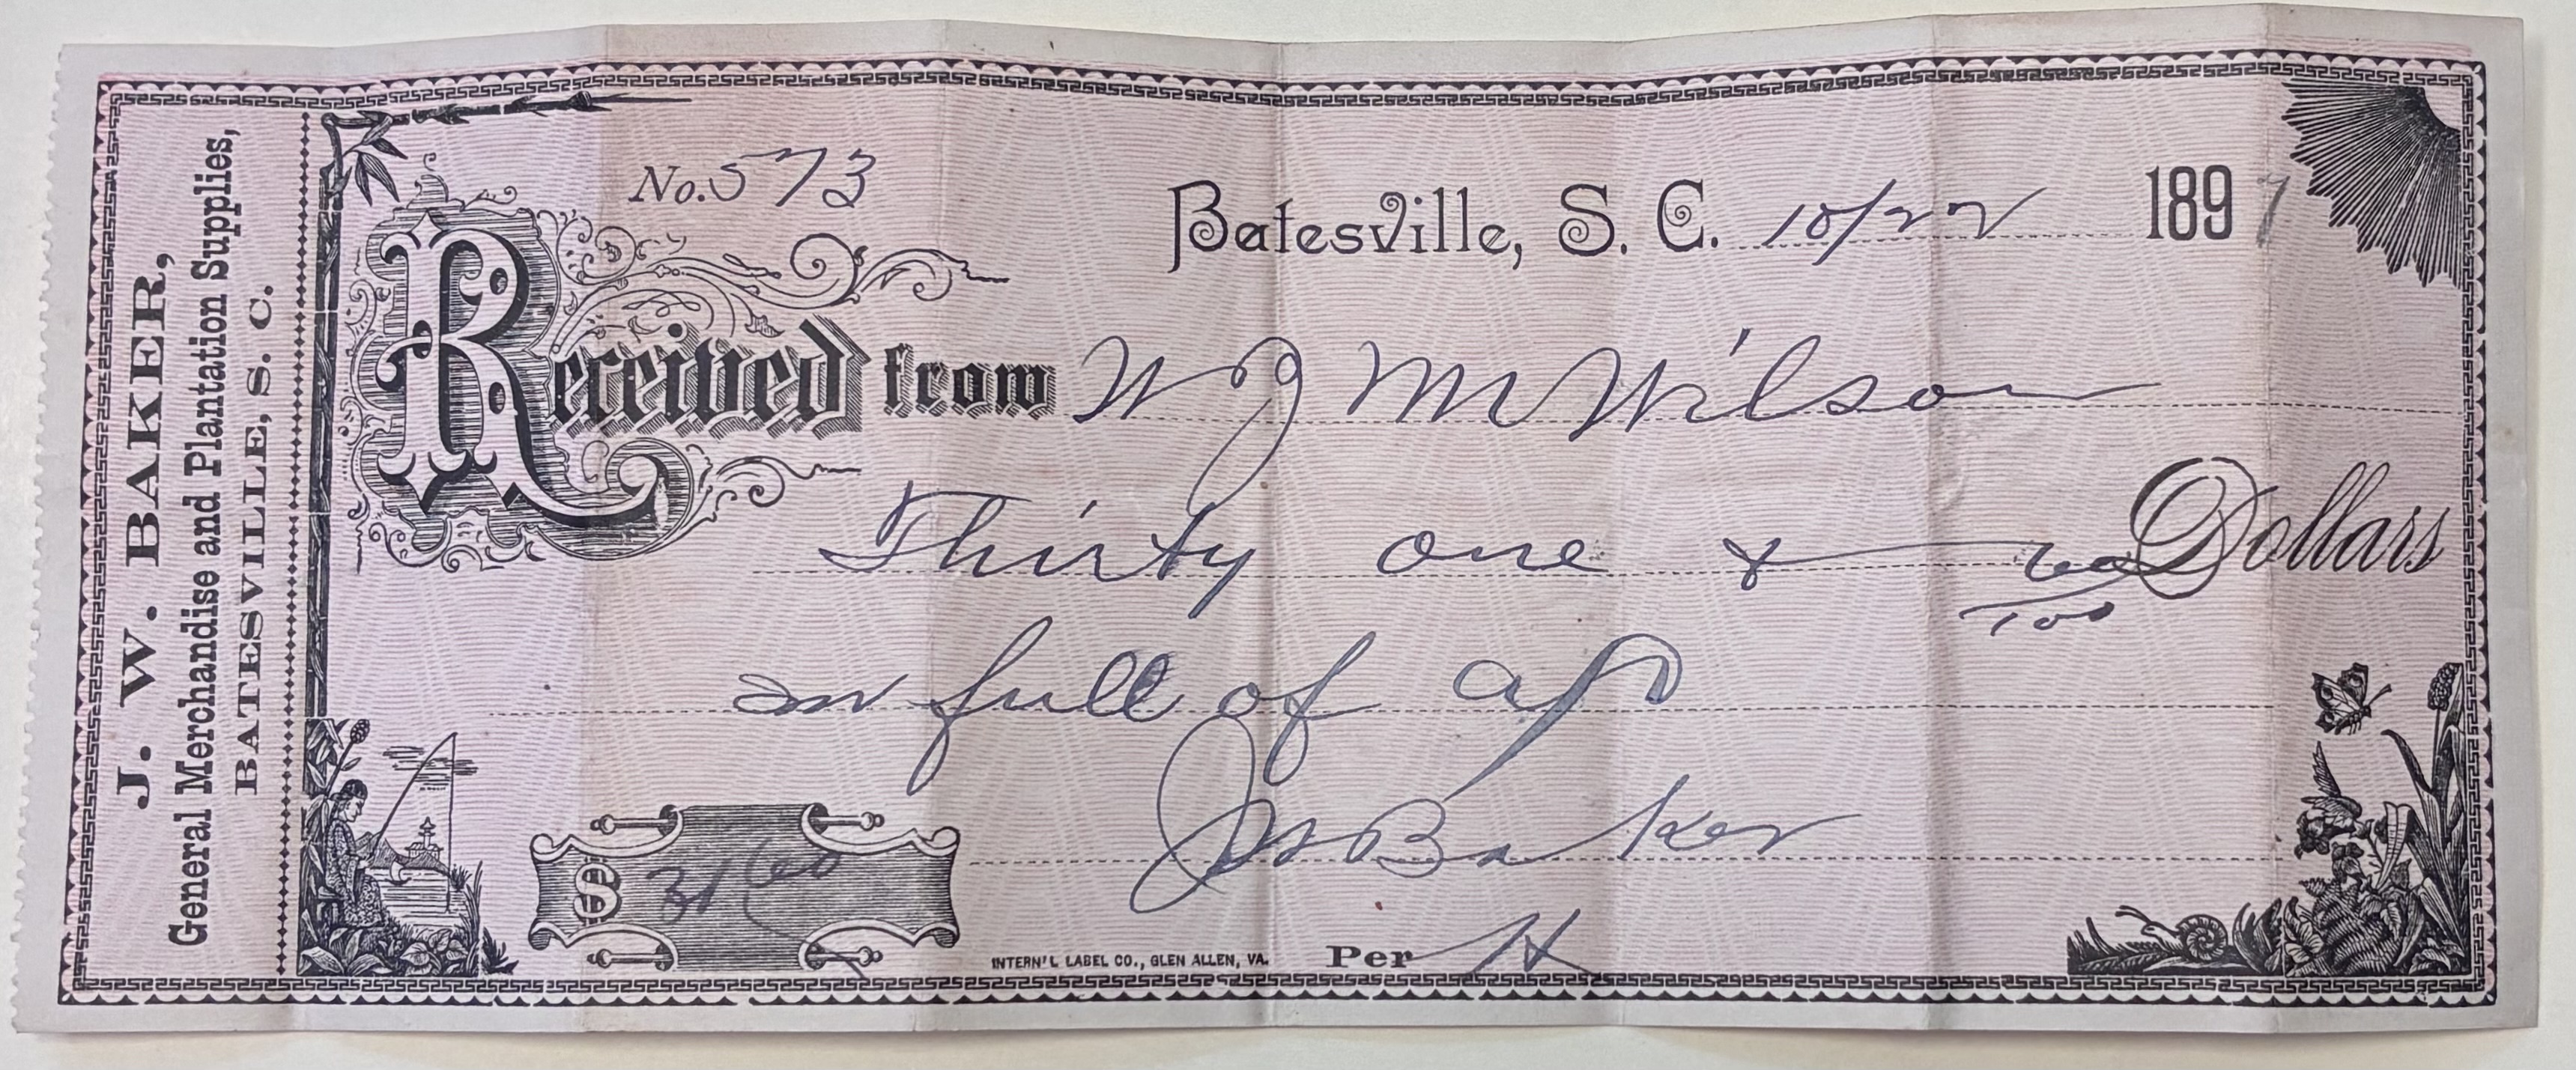 J. W. BAKER,
General Merchandise and Plantation Supplies,
BATESVILLE, S. C.
No. 573
Batesville, S. C. 10/22 1897
Received from W J M Wilson
Thirty one & 60/100 Dollars
in full of a/c
J W Baker
$ 31 60
INTERN'L LABEL CO., GLEN ALLEN, VA.
Per H